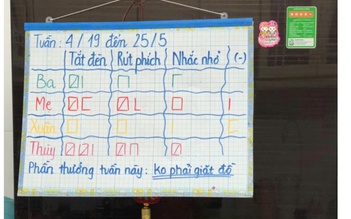 Tuần: 4 / 19 đến 25/5
Tắt đèn Rút phích Nhắc nhở (-)
Ba
Mẹ
Xuân
Thủy
Phần thưởng tuần này: ko phải giặt đồ